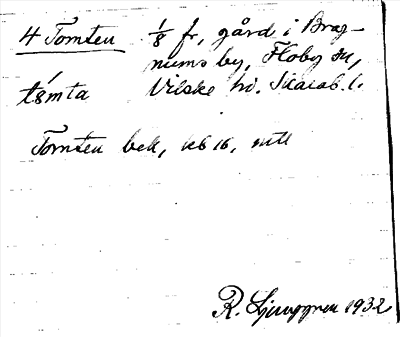 4 Tomten ⅛ fr, gård i Brag-
nums by, Floby sn,
tómta Vilske hd. Skarab. l.
Tomten bek, kb 16, mtl
R. Ljunggren 1932